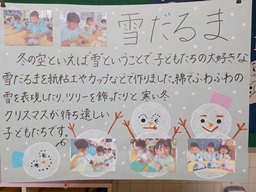 雪だるま
冬の空といえば雪ということで子どもたちの大好きな
雪だるまを紙粘土やカップなどで作りました。綿でふわふわの
雪を表現したり、ツリーを飾ったりと、寒い冬
クリスマスが待ち遠しい
子どもたちです。